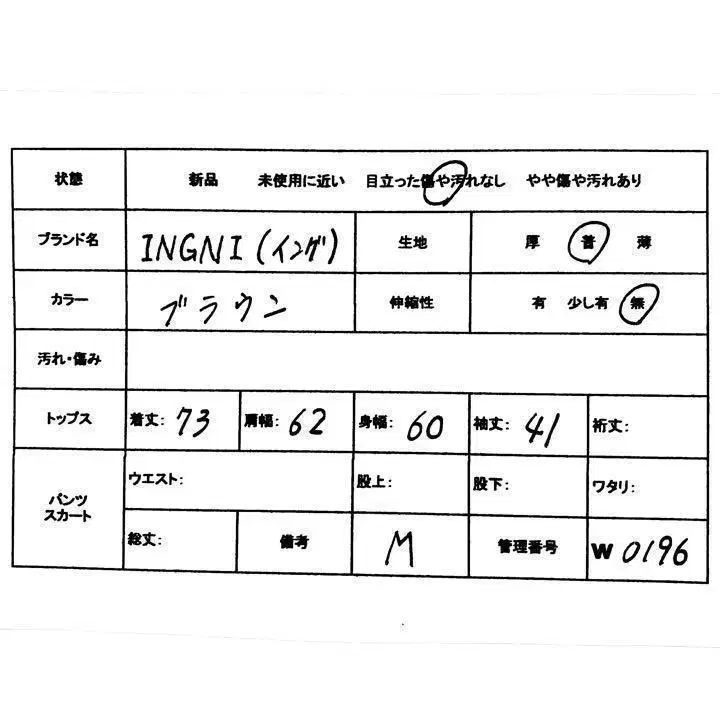 状態 新品 未使用に近い 目立った傷や汚れなし やや傷や汚れあり
ブランド名 INGNI(イング) 生地 厚 普 薄
カラー ブラウン 伸縮性 有 少し有 無
汚れ・傷み
トップス 着丈: 73 肩幅: 62 身幅: 60 袖丈: 41 裄丈:
パンツ
スカート
ウエスト: 股上: 股下: ワタリ:
総丈: 備考 M 管理番号 W 0196